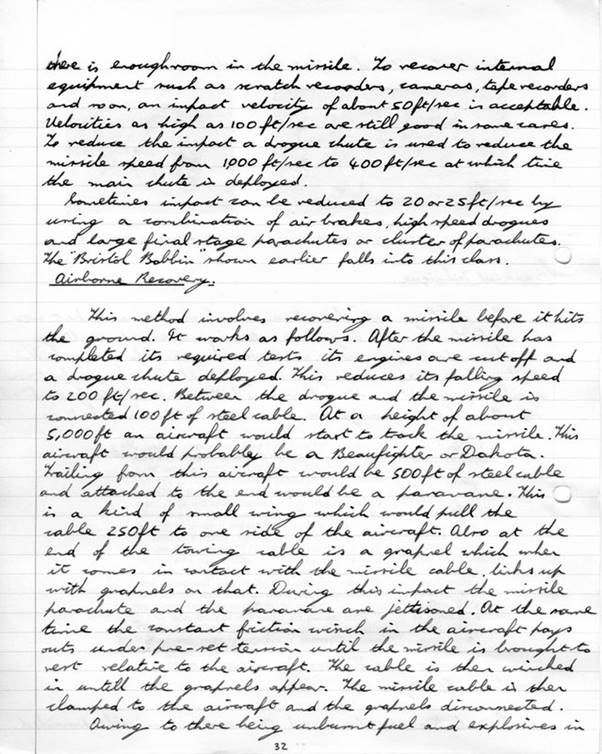 there is enough room in the missile. To recover internal
equipment such as scratch recorders, cameras, tape recorders
and so on, an impact velocity of about 50ft/sec is acceptable.
Velocities as high as 100ft/sec are still good in some cases.
To reduce the impact a drogue chute is used to reduce the
missile speed from 1,000 ft/sec to 400ft/sec at which time
the main chute is deployed.
Sometimes impact can be reduced to 20 or 25ft/sec by
using a combination of air brakes, high speed drogues
and large final stage parachutes or cluster of parachutes.
The "Bristol Bobbin" shown earlier falls into this class.
Airborne Recovery.
This method involves recovering a missile before it hits
the ground. It works as follows. After the missile has
completed its required tests its engines are cut off and
a drogue chute deployed. This reduces its falling speed
to 200ft/sec. Between the drogue and the missile is
connected 100ft of steel cable. At a height of about
5,000ft an aircraft would start to track the missile. This
aircraft would probably be a Beaufighter or Dakota.
Trailing from this aircraft would be 500ft of steel cable
and attached to the end would be a paravane. This
is a kind of small wing which would pull the
cable 250ft to one side of the aircraft. Also at the
end of the towing cable is a grapnel which when
it comes in contact with the missile cable, links up
with grapnels on that. During this impact the missile
parachute and the paravane are jettisoned. At the same
time the constant friction winch in the aircraft pays
outs under pre-set tension until the missile is brought to
rest relative to the aircraft. The cable is then winched
in untill the grapnels appear. The missile cable is then
clamped to the aircraft and the grapnels disconnected.
Owing to there being unburnt fuel and explosives in
32